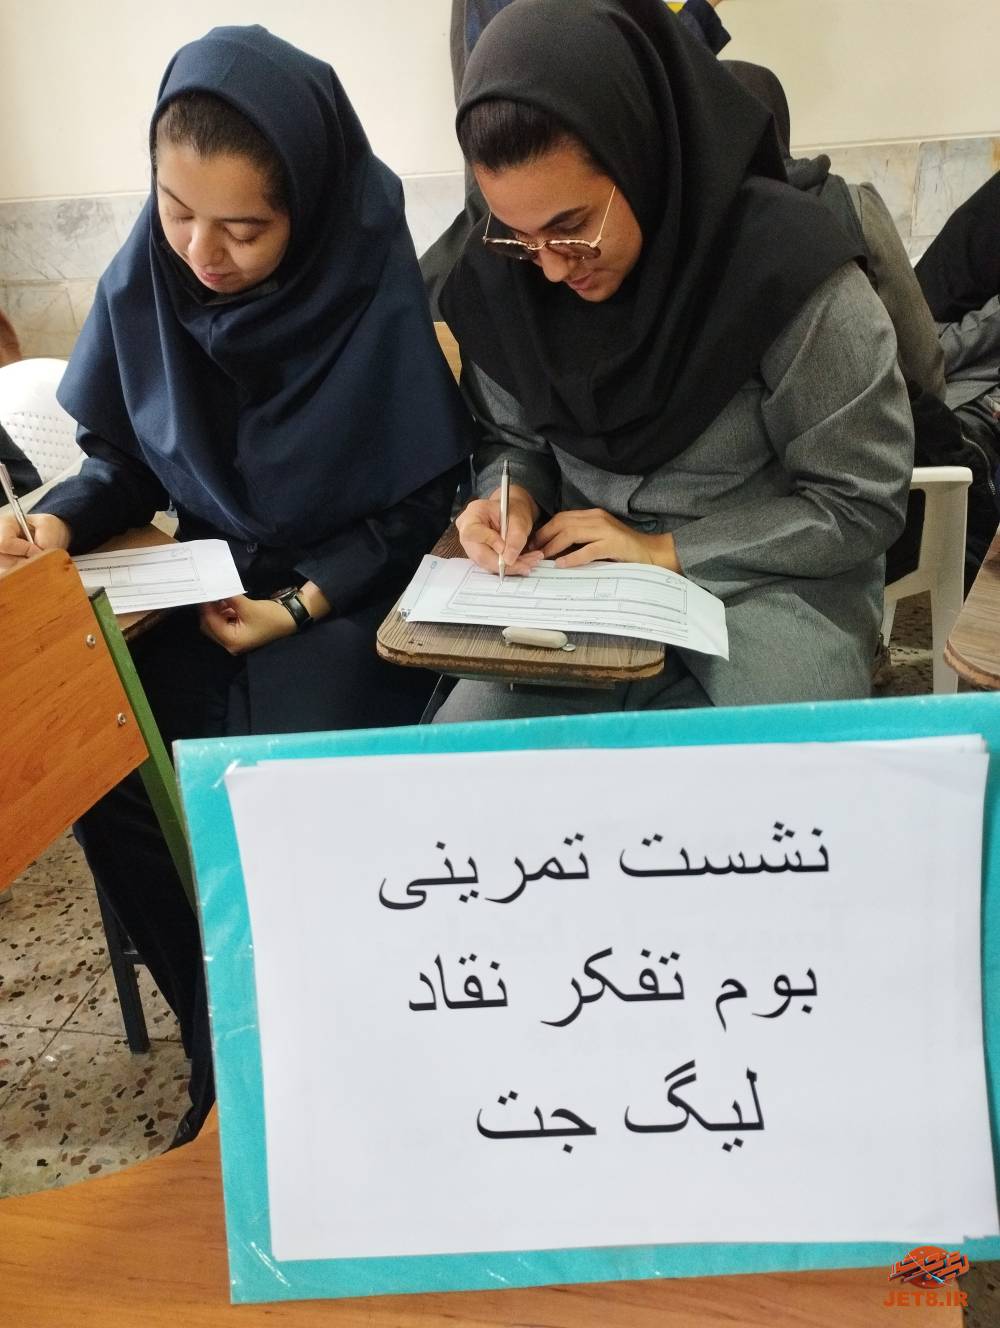 نشست تمرینی
بوم تفکر نقاد
لیگ جت
JET8.IR